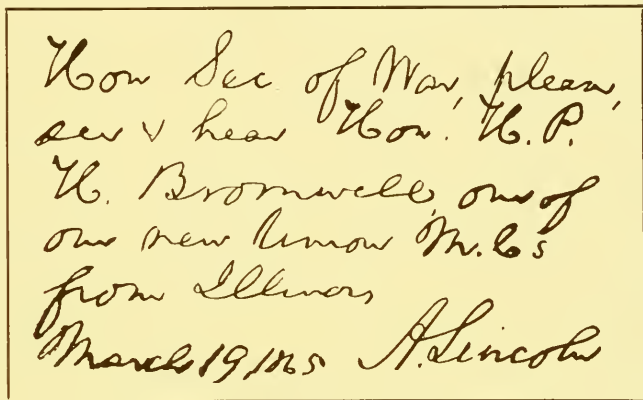 Hon Sec of War, please,
see & hear Hon. H. P.
H. Bromwell, one of
our new Union M.Cs
from Illinois
March 19, 1865 A. Lincoln